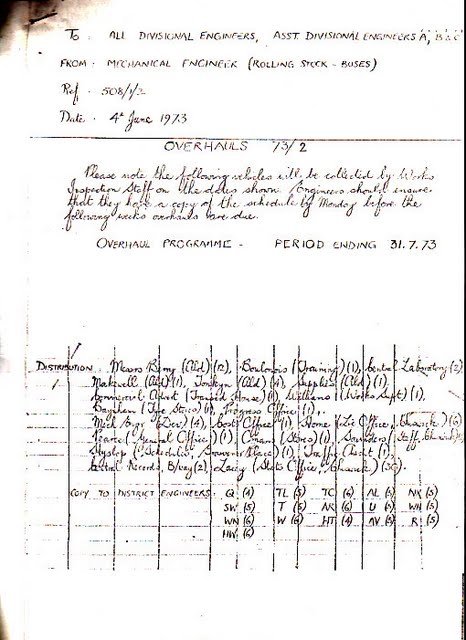 To ALL DIVISIONAL ENGINEERS, ASST DIVISIONAL ENGINEERS A, B & C
FROM: MECHANICAL ENGINEER (ROLLING STOCK - BUSES)
Ref. 508/1/2
Date. 4th June 1973
OVERHAULS 73/2
Please note the following vehicles will be collected by Works
Inspection Staff on the dates shown. Engineers should ensure
that they have a copy of the schedule by Monday before the
following weeks overhauls are due.
OVERHAUL PROGRAMME - PERIOD ENDING 31.7.73
DISTRIBUTION. (Ald) (12), (Training) (1), Central Laboratory (2)
(Ald) (1), (Ald) (4), Supplies (Ald) (1)
(1), Williams (Works Supt) (1),
(Tyre Stores) (1), Progress Office (1),
(4), Cost Office (1), (Lic Office, Chiswick) (6)
Pearce (General Office) (1), (Stores) (1), Saunders
Hyslop (Schedules (1), Traffic (1)
Central Records, B/way (2), Lacey (Stats Office, Chiswick) (30).
COPY TO DISTRICT ENGINEERS. Q (4) TL (5) TC (6) AL (5) NX (5)
SW (5) T (5) AR (6) U (5) WH (5)
WN (6) W (6) HT (4) AV (5) R (5)
HW (6)